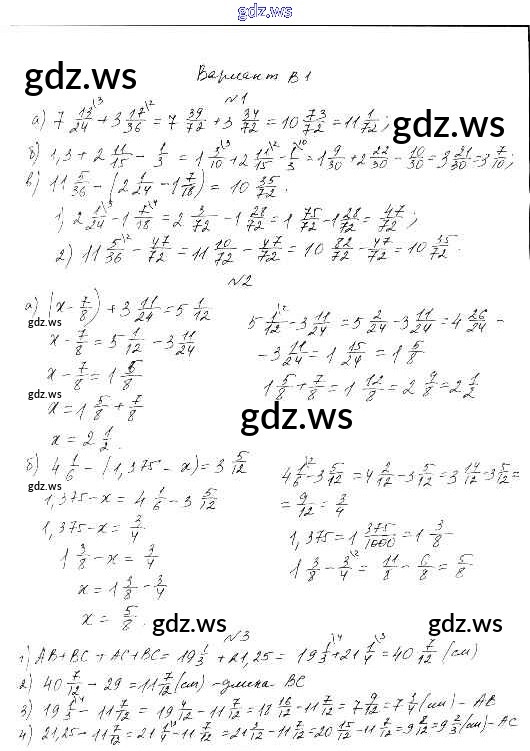 gdz.ws
gdz.ws gdz.ws
Вариант В1
№1
а) 7 13/24\3 + 3 17/36\2 = 7 39/72 + 3 34/72 = 10 73/72 = 11 1/72;
б) 1,3 + 2 11/15 - 1/3 = 1 3/10\3 + 2 11/15\2 - 1/3\10 = 1 9/30 + 2 22/30 - 10/30 = 3 21/30 = 3 7/10;
в) 11 5/36 - (2 1/24 - 1 7/18) = 10 35/72.
1) 2 1/24\3 - 1 7/18\4 = 2 3/72 - 1 28/72 = 1 75/72 - 1 28/72 = 47/72;
2) 11 5/36\2 - 47/72 = 11 10/72 - 47/72 = 10 82/72 - 47/72 = 10 35/72.
№2
а) (x - 7/8) + 3 11/24 = 5 1/12
gdz.ws
x - 7/8 = 5 1/12 - 3 11/24
x - 7/8 = 1 5/8
gdz.ws
x = 1 5/8 + 7/8
x = 2 1/2.
5 1/12\2 - 3 11/24 = 5 2/24 - 3 11/24 = 4 26/24 -
- 3 11/24 = 1 15/24 = 1 5/8
1 5/8 + 7/8 = 1 12/8 = 2 1/2
gdz.ws
б) 4 1/6 - (1,375 - x) = 3 5/12
gdz.ws
1,375 - x = 4 1/6 - 3 5/12
1,375 - x = 3/4.
1 3/8 - x = 3/4
x = 1 3/8 - 3/4
x = 5/8.
4 1/6\2 - 3 5/12 = 4 2/12 - 3 5/12 = 3 14/12 - 3 5/12 =
= 9/12 = 3/4
1,375 = 1 375/1000 = 1 3/8
gdz.ws
1 3/8 - 3/4\2 = 11/8 - 6/8 = 5/8
gdz.ws gdz.ws
№3
1) AB+BC + AC+BC = 19 1/3 + 21,25 = 19 1/3\4 + 21 1/4\3 = 40 7/12 (см)
2) 40 7/12 - 29 = 11 7/12 (см) - длина BC
3) 19 1/3\4 - 11 7/12 = 19 4/12 - 11 7/12 = 18 16/12 - 11 7/12 = 7 9/12 = 7 3/4 (см) - AB
4) 21,25 - 11 7/12 = 21 1/4\3 - 11 7/12 = 21 3/12 - 11 7/12 = 20 15/12 - 11 7/12 = 9 8/12 = 9 2/3 (см) - AC